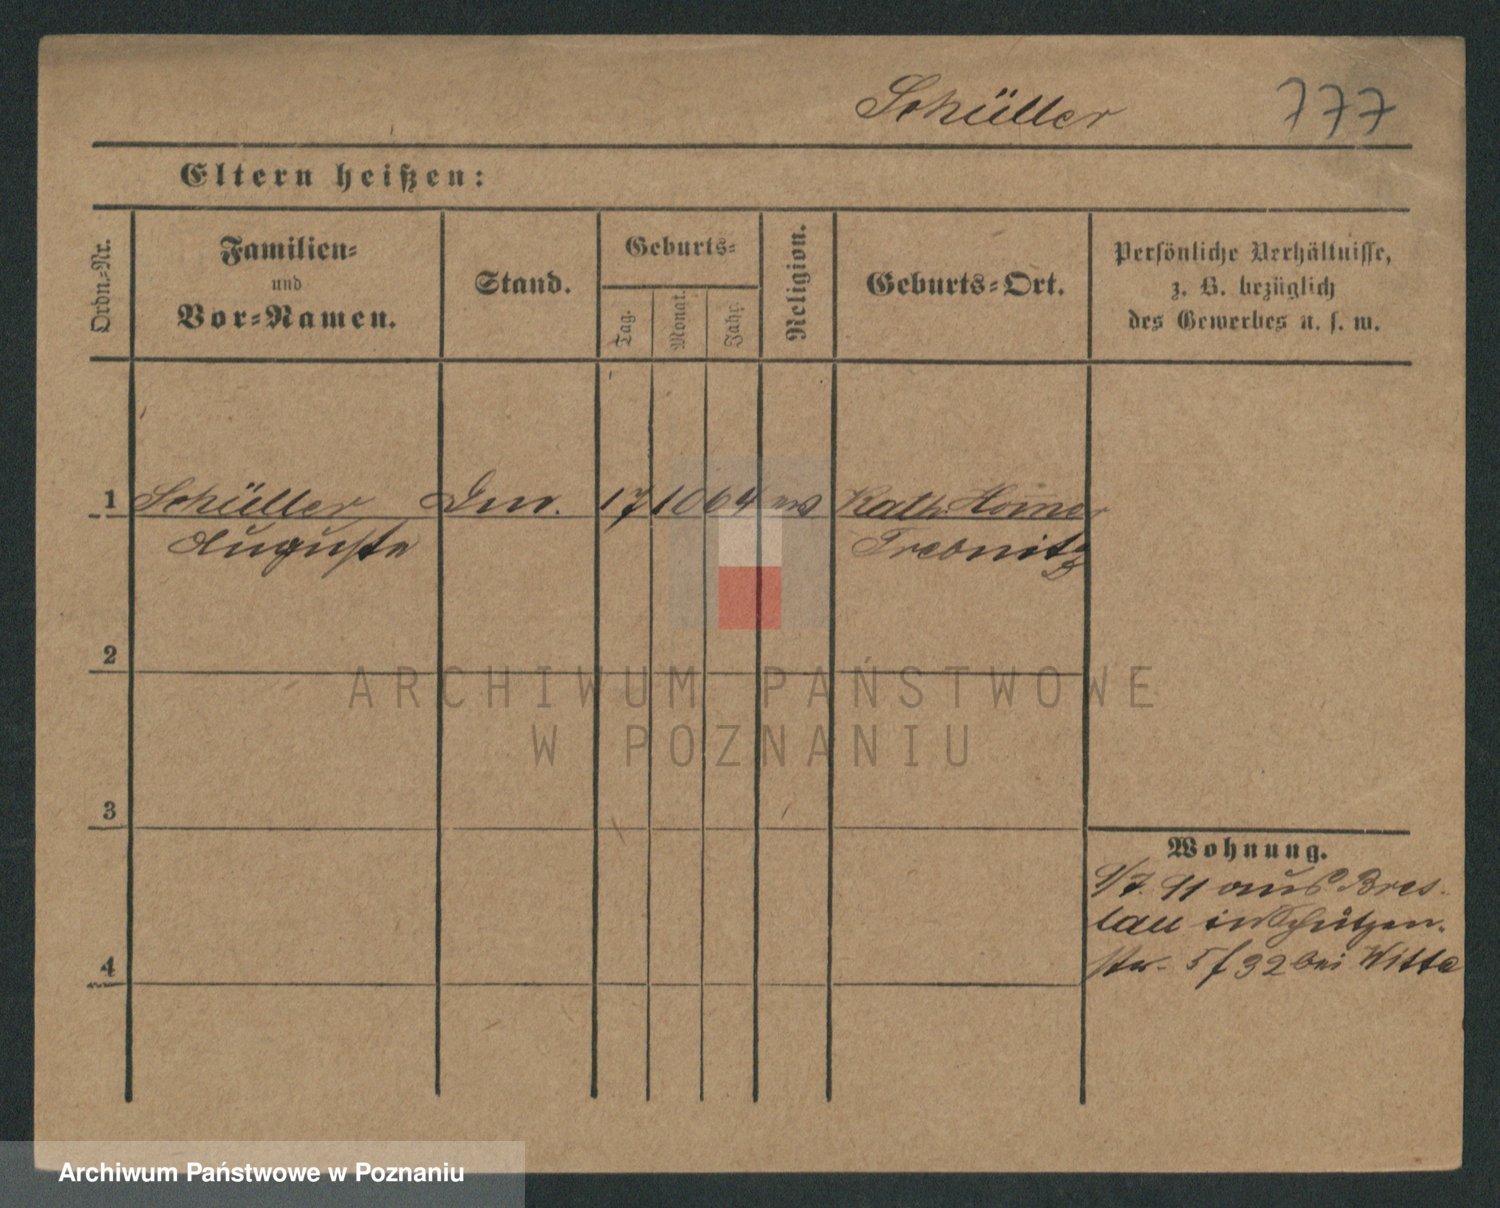 Schüller 777
Eltern heißen:
Ordn.-Nr.
Familien-
und
Vor-Namen.
Stand.
Geburts-
Tag.
Monat.
Jahr.
Religion.
Geburts-Ort.
Persönliche Verhältnisse,
z. B. bezüglich
des Gewerbes u. s. w.
1 Schüller 17 10 64 Kath. Hamer
Auguste Trebnitz
2
ARCHIWUM PAŃSTWOWE
W POZNANIU
3
Wohnung.
9/7. 91 aus Bres-
lau in Schützen-
str. 5 f 32 bei Witte
4
Archiwum Państwowe w Poznaniu